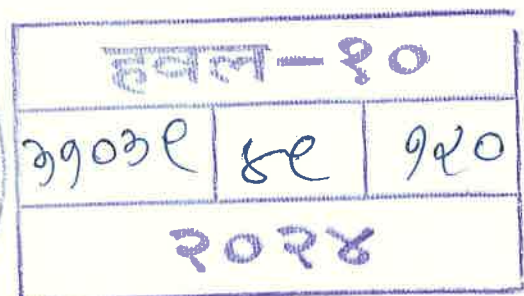 हवल-१०
३१०३९ ४९ १२०
२०२४